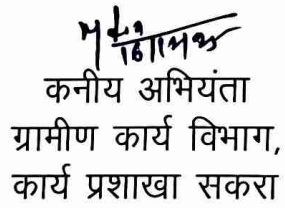 कनीय अभियंता
ग्रामीण कार्य विभाग,
कार्य प्रशाखा सकरा